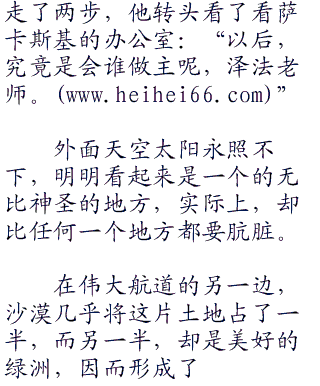 走了两步，他转头看了看萨
卡斯基的办公室：“以后，
究竟是会谁做主呢，泽法老
师。(www.heihei66.com)”
外面天空太阳永照不
下，明明看起来是一个的无
比神圣的地方，实际上，却
比任何一个地方都要肮脏。
在伟大航道的另一边，
沙漠几乎将这片土地占了一
半，而另一半，却是美好的
绿洲，因而形成了